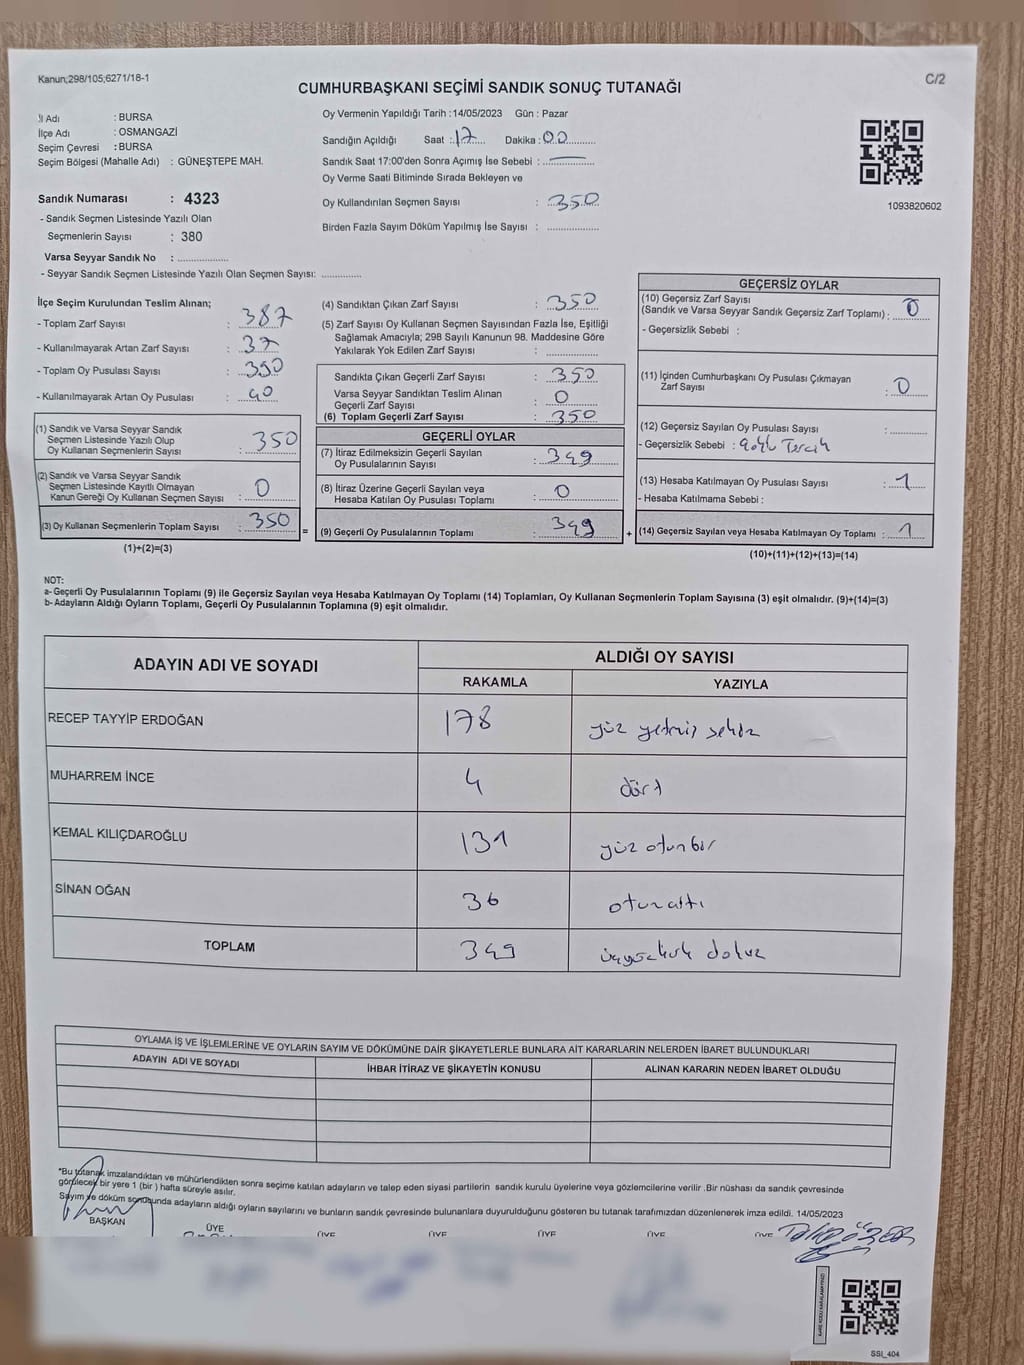 Kanun;298/105;6271/18-1
C/2
CUMHURBAŞKANI SEÇİMİ SANDIK SONUÇ TUTANAĞI
İl Adı : BURSA
İlçe Adı : OSMANGAZİ
Seçim Çevresi : BURSA
Seçim Bölgesi (Mahalle Adı) : GÜNEŞTEPE MAH.
Oy Vermenin Yapıldığı Tarih :14/05/2023 Gün : Pazar
Sandığın Açıldığı Saat : 17 Dakika : 00
Sandık Saat 17:00'den Sonra Açımış İse Sebebi : —
Oy Verme Saati Bitiminde Sırada Bekleyen ve
Oy Kullandırılan Seçmen Sayısı : 350
Birden Fazla Sayım Döküm Yapılmış İse Sayısı :
1093820602
Sandık Numarası : 4323
- Sandık Seçmen Listesinde Yazılı Olan
Seçmenlerin Sayısı : 380
Varsa Seyyar Sandık No :
- Seyyar Sandık Seçmen Listesinde Yazılı Olan Seçmen Sayısı:
İlçe Seçim Kurulundan Teslim Alınan;
- Toplam Zarf Sayısı : 387
- Kullanılmayarak Artan Zarf Sayısı : 37
- Toplam Oy Pusulası Sayısı : 390
- Kullanılmayarak Artan Oy Pusulası : 40
(1) Sandık ve Varsa Seyyar Sandık
Seçmen Listesinde Yazılı Olup
Oy Kullanan Seçmenlerin Sayısı : 350
(2) Sandık ve Varsa Seyyar Sandık
Seçmen Listesinde Kayıtlı Olmayan
Kanun Gereği Oy Kullanan Seçmen Sayısı : 0
(3) Oy Kullanan Seçmenlerin Toplam Sayısı : 350 =
(1)+(2)=(3)
(4) Sandıktan Çıkan Zarf Sayısı : 350
(5) Zarf Sayısı Oy Kullanan Seçmen Sayısından Fazla İse, Eşitliği
Sağlamak Amacıyla; 298 Sayılı Kanunun 98. Maddesine Göre
Yakılarak Yok Edilen Zarf Sayısı :
Sandıkta Çıkan Geçerli Zarf Sayısı : 350
Varsa Seyyar Sandıktan Teslim Alınan
Geçerli Zarf Sayısı : 0
(6) Toplam Geçerli Zarf Sayısı : 350
GEÇERLİ OYLAR
(7) İtiraz Edilmeksizin Geçerli Sayılan
Oy Pusulalarının Sayısı : 349
(8) İtiraz Üzerine Geçerli Sayılan veya
Hesaba Katılan Oy Pusulası Toplamı : 0
(9) Geçerli Oy Pusulalarının Toplamı : 349 +
GEÇERSİZ OYLAR
(10) Geçersiz Zarf Sayısı
(Sandık ve Varsa Seyyar Sandık Geçersiz Zarf Toplamı) : 0
- Geçersizlik Sebebi :
(11) İçinden Cumhurbaşkanı Oy Pusulası Çıkmayan
Zarf Sayısı : 0
(12) Geçersiz Sayılan Oy Pusulası Sayısı :
- Geçersizlik Sebebi : Tercih
(13) Hesaba Katılmayan Oy Pusulası Sayısı : 1
- Hesaba Katılmama Sebebi :
(14) Geçersiz Sayılan veya Hesaba Katılmayan Oy Toplamı : 1
(10)+(11)+(12)+(13)=(14)
NOT:
a- Geçerli Oy Pusulalarının Toplamı (9) ile Geçersiz Sayılan veya Hesaba Katılmayan Oy Toplamı (14) Toplamları, Oy Kullanan Seçmenlerin Toplam Sayısına (3) eşit olmalıdır. (9)+(14)=(3)
b- Adayların Aldığı Oyların Toplamı, Geçerli Oy Pusulalarının Toplamına (9) eşit olmalıdır.
ADAYIN ADI VE SOYADI
ALDIĞI OY SAYISI
RAKAMLA YAZIYLA
RECEP TAYYİP ERDOĞAN 178 yüz yetmiş sekiz
MUHARREM İNCE 4 dört
KEMAL KILIÇDAROĞLU 131 yüz otuz bir
SİNAN OĞAN 36 otuz altı
TOPLAM 349 üçyüz kırk dokuz
OYLAMA İŞ VE İŞLEMLERİNE VE OYLARIN SAYIM VE DÖKÜMÜNE DAİR ŞİKAYETLERLE BUNLARA AİT KARARLARIN NELERDEN İBARET BULUNDUKLARI
ADAYIN ADI VE SOYADI İHBAR İTİRAZ VE ŞİKAYETİN KONUSU ALINAN KARARIN NEDEN İBARET OLDUĞU
*Bu tutanak imzalandıktan ve mühürlendikten sonra seçime katılan adayların ve talep eden siyasi partilerin sandık kurulu üyelerine veya gözlemcilerine verilir .Bir nüshası da sandık çevresinde
görülecek bir yere 1 (bir ) hafta süreyle asılır.
Sayım ve döküm sonucunda adayların aldığı oyların sayılarını ve bunların sandık çevresinde bulunanlara duyurulduğunu gösteren bu tutanak tarafımızdan düzenlenerek imza edildi. 14/05/2023
BAŞKAN ÜYE ÜYE ÜYE ÜYE ÜYE ÜYE
SSI_404